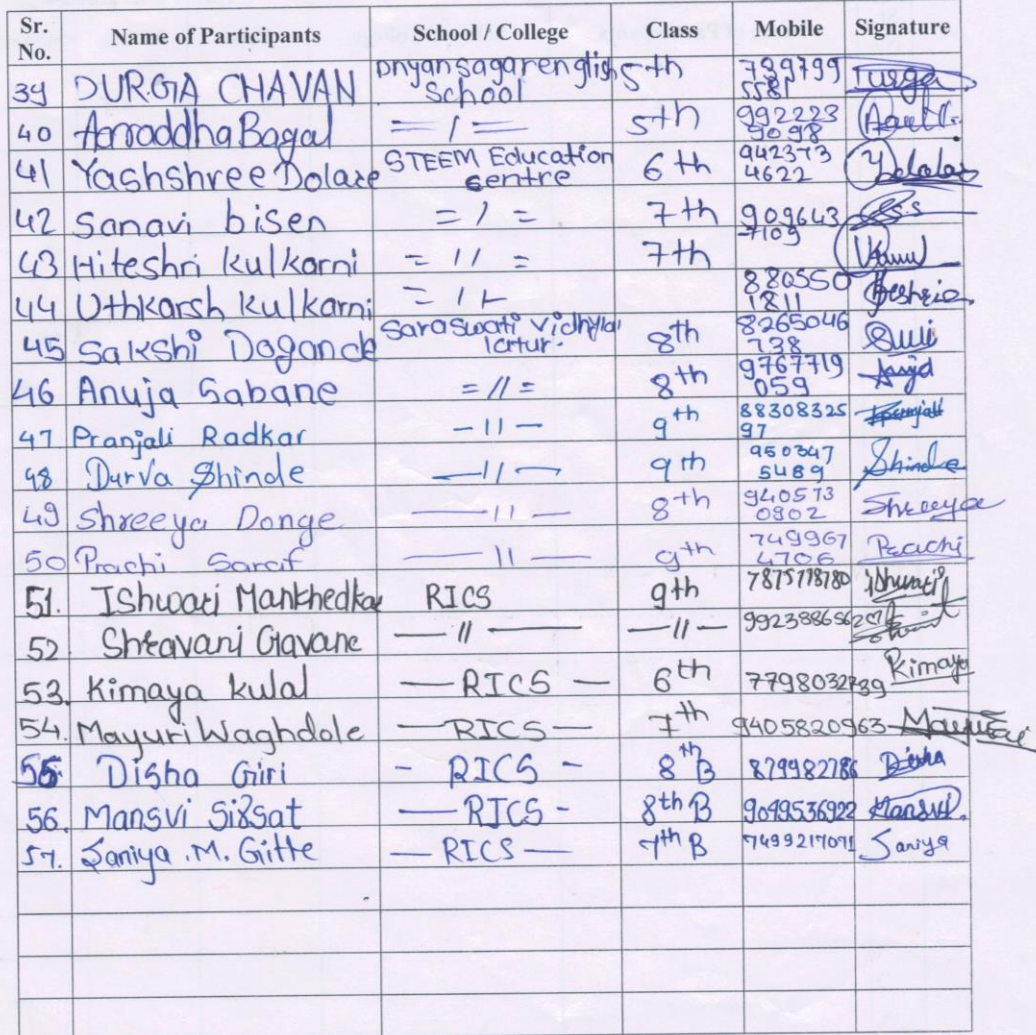 Sr. No. Name of Participants School / College Class Mobile Signature
39 DURGA CHAVAN Dnyansagar english School 5th 789799 5581 Durga
40 Anraddha Bagal = / = 5th 992223 9098
41 Yashshree Dolare STEEM Education Centre 6th 942373 4622
42 Sanavi bisen = / = 7th 909643 7109
43 Hiteshri kulkarni = // = 7th
44 Uthkarsh kulkarni = / 880550 1811
45 Sakshi Dogande Saraswati vidhylai latur. 8th 8265046 738
46 Anuja Sabane = // = 8th 9767719 059 Anuja
47 Pranjali Radkar - 11 - 9th 88308325 97 Pranjali
48 Durva Shinde - 11 - 9th 950347 5489 Shinde
49 Shreeya Donge - 11 - 8th 940573 0902 Shreeya
50 Prachi Saraf - 11 - 9th 749967 4706 Prachi
51. IShwari Mankhedkar RICS 9th 7875778780 Ishwari
52 Shravani Gavane - 11 - - 11 - 9923886562
53. Kimaya kulal - RICS - 6th 7798032739 Kimaya
54. Mayuri Waghdole - RICS - 7th 9405820963 Mayuri
55 Disha Giri - RICS - 8th B 879982786 Disha
56. Mansvi Sirsat - RICS - 8th B 9049536922 Mansvi.
57. Saniya .M. Gitte - RICS - 7th B 7499217071 Saniya